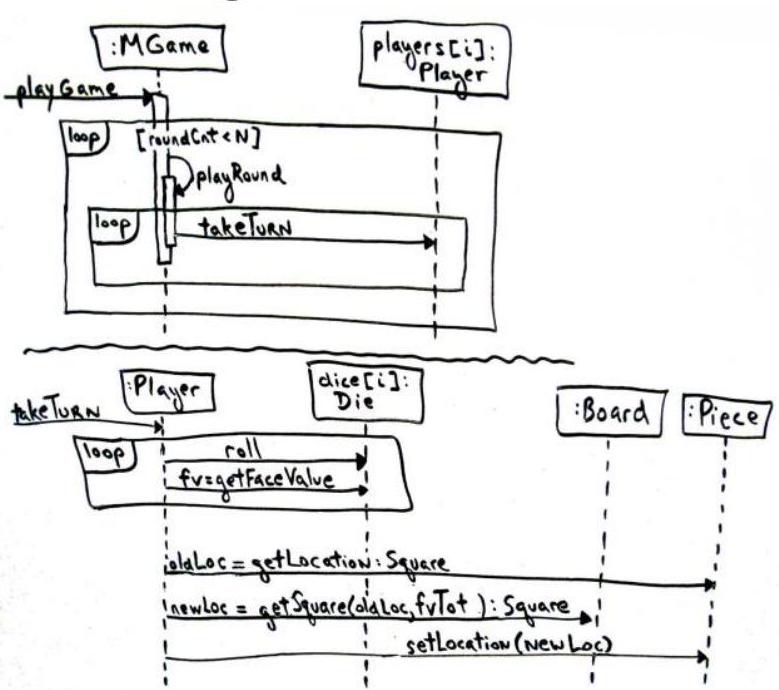 :MGame
players[i]:
Player
playGame
loop
[roundCnt<N]
playRound
loop
takeTURN
:Player
dice[i]:
Die
:Board
:Piece
takeTURN
loop
roll
fv=getFaceValue
oldLoc = getLocation: Square
newLoc = getSquare(oldLoc,fvTot ): Square
setLocation(NewLoc)